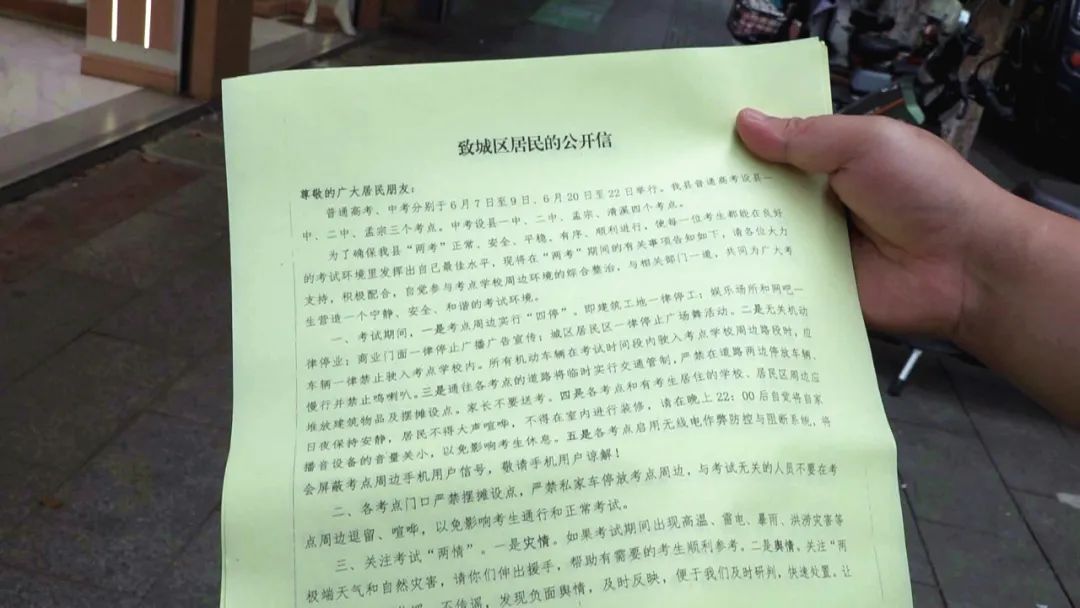 致城区居民的公开信
尊敬的广大居民朋友：
普通高考、中考分别于6月7日至9日、6月20日至22日举行。我县普通高考设县一
中、二中、孟宗三个考点。中考设县一中、二中、孟宗、清溪四个考点。
为了确保我县“两考”正常、安全、平稳、有序、顺利进行，使每一位考生都能在良好
的考试环境里发挥出自己最佳水平，现将在“两考”期间的有关事项告知如下，请各位大力
支持，积极配合，自觉参与考点学校周边环境的综合整治，与相关部门一道，共同为广大考
生营造一个宁静、安全、和谐的考试环境。
一、考试期间，一是考点周边实行“四停”。即建筑工地一律停工；娱乐场所和网吧一
律停业；商业门面一律停止广播广告宣传；城区居民区一律停止广场舞活动。二是无关机动
车辆一律禁止驶入考点学校内。所有机动车辆在考试时间段内驶入考点学校周边路段时，应
慢行并禁止鸣喇叭。三是通往各考点的道路将临时实行交通管制，严禁在道路两边停放车辆、
堆放建筑物品及摆摊设点。家长不要送考。四是各考点和有考生居住的学校、居民区周边应
日夜保持安静，居民不得大声喧哗，不得在室内进行装修，请在晚上22：00后自觉将自家
播音设备的音量关小，以免影响考生休息。五是各考点启用无线电作弊防控与阻断系统，将
会屏蔽考点周边手机用户信号，敬请手机用户谅解！
二、各考点门口严禁摆摊设点，严禁私家车停放考点周边，与考试无关的人员不要在考
点周边逗留、喧哗，以免影响考生通行和正常考试。
三、关注考试“两情”。一是灾情。如果考试期间出现高温、雷电、暴雨、洪涝灾害等
极端天气和自然灾害，请你们伸出援手，帮助有需要的考生顺利参考。二是舆情。关注“两
不传谣，发现负面舆情，及时反映，便于我们及时研判，快速处置。让